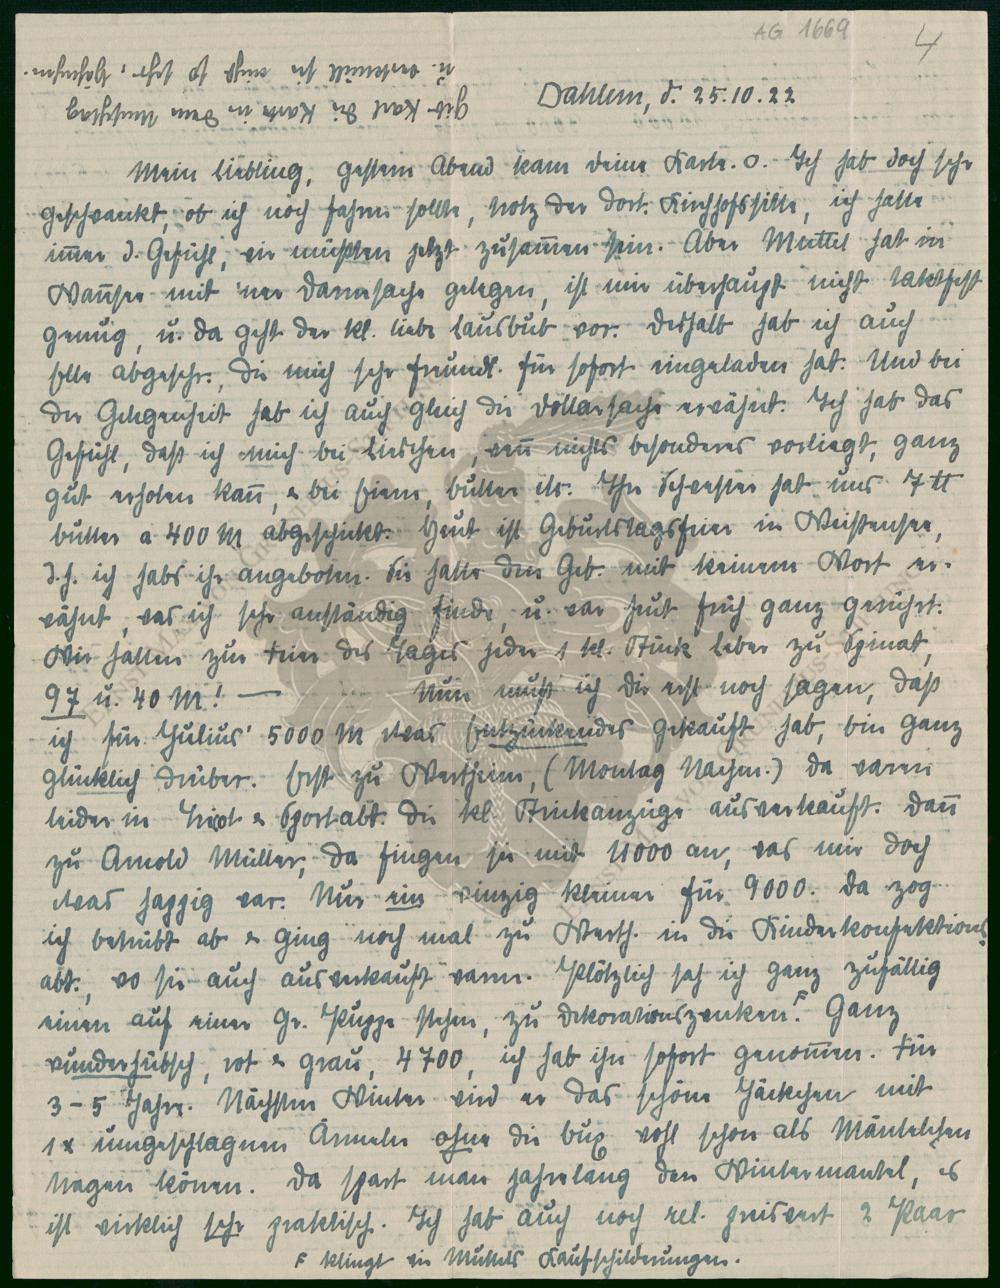 AG 1669
4
gib Karl die Karte in dem Umschlag
Dahlem, d. 25.10.22
Mein Liebling, gestern Abend kam deine Karte. o. Ich hab doch sehr
geschwankt, ob ich noch fahren sollte, trotz der dort. Kirchhofsstille, ich hatte
im̄er d. Gefühl, wir müßten jetzt zusam̄en sein. Aber Muttel hat in
Wan̄see mit 'ner Darmsache gelegen, ist mir überhaupt nicht taktfest
genug, u. da geht der kl. liebe Lausbub vor. Deshalb hab ich auch
Elle abgeschr., die mich sehr freundl. für sofort eingeladen hat. Und bei
der Gelegenheit hab ich auch gleich die Dollarsache erwähnt. Ich hab das
Gefühl, daß ich mich bei Lieschen, wen̄ nichts besonderes vorliegt, ganz
gut erholen kan̄, & bei Eiern, Butter etc. Ihre Schwester hat uns 7 ℔
Butter a 400 M abgeschickt. Heut ist Geburtstagsfeier in Weißensee,
d.h. ich habs ihr angeboten. Sie hatte den Geb. mit keinem Wort er-
wähnt, was ich sehr anständig finde, u. war heut früh ganz gerührt.
Wir hatten zur Feier des Tages jeder 1 kl. Stück Leber zu Spinat,
97 u. 40 M! — Nun muß ich dir erst noch sagen, daß
ich für Julius' 5000 M etwas Entzückendes gekauft hab, bin ganz
glücklich drüber. Erst zu Wertheim, (Montag Nachm.) da waren
leider in Trikot & Sportabt. die kl. Strickanzüge ausverkauft. Dan̄
zu Arnold Müller, da fingen sie mit 11000 an, was mir doch
etwas happig war. Nur ein einzig kleiner für 9000. Da zog
ich betrübt ab & ging noch mal zu Werth. in die Kinderkonfektions
abt., wo sie auch ausverkauft waren. Plötzlich sah ich ganz zufällig
einen auf einer Gr. Puppe stehen, zu Dekorationszwecken. F Ganz
wunderhübsch, rot & grau, 4700, ich hab ihn sofort genom̄en. Für
3-5 Jahre. Nächsten Winter wird er das schöne Jäckchen mit
1x umgeschlagnen Ärmeln ohne die Bux wohl schon als Mäntelchen
tragen kön̄en. Da spart man jahrelang den Wintermantel, es
ist wirklich sehr praktisch. Ich hab auch noch rel. preiswert 2 Paar
F klingt wie Muttels Kaufschilderungen.